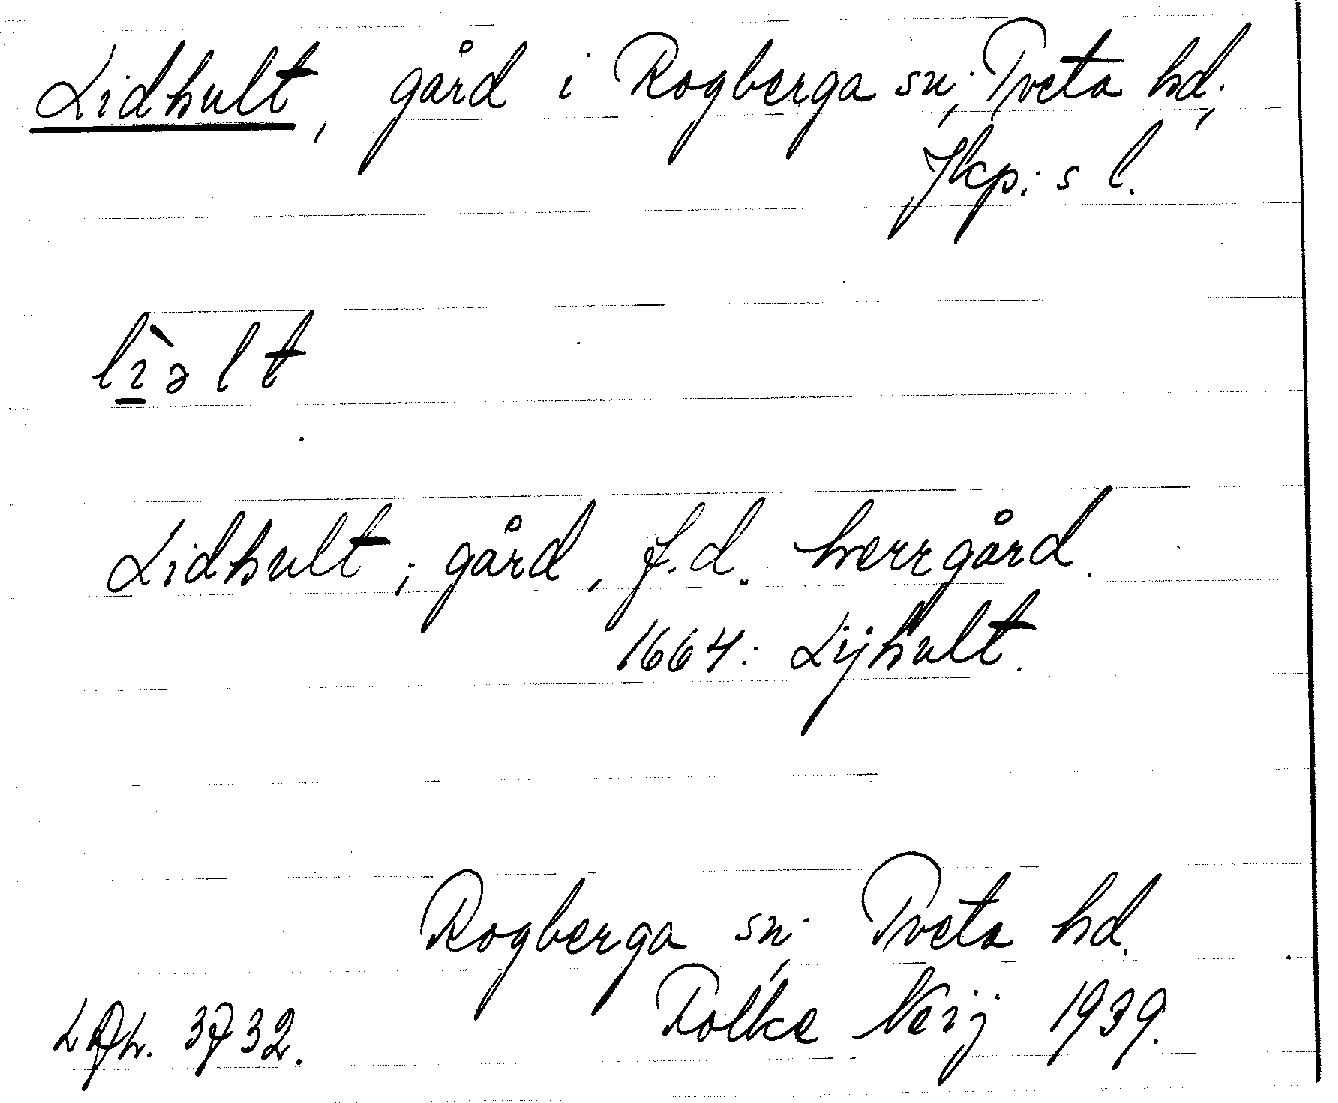 Lidhult, gård i Rogberga sn, Tveta hd,
Jkp:s l.
lı̱̀əlt
Lidhult, gård, f.d. herrgård.
1664: Lijhult.
Rogberga sn, Tveta hd.
Folke Neij 1939.
3732.